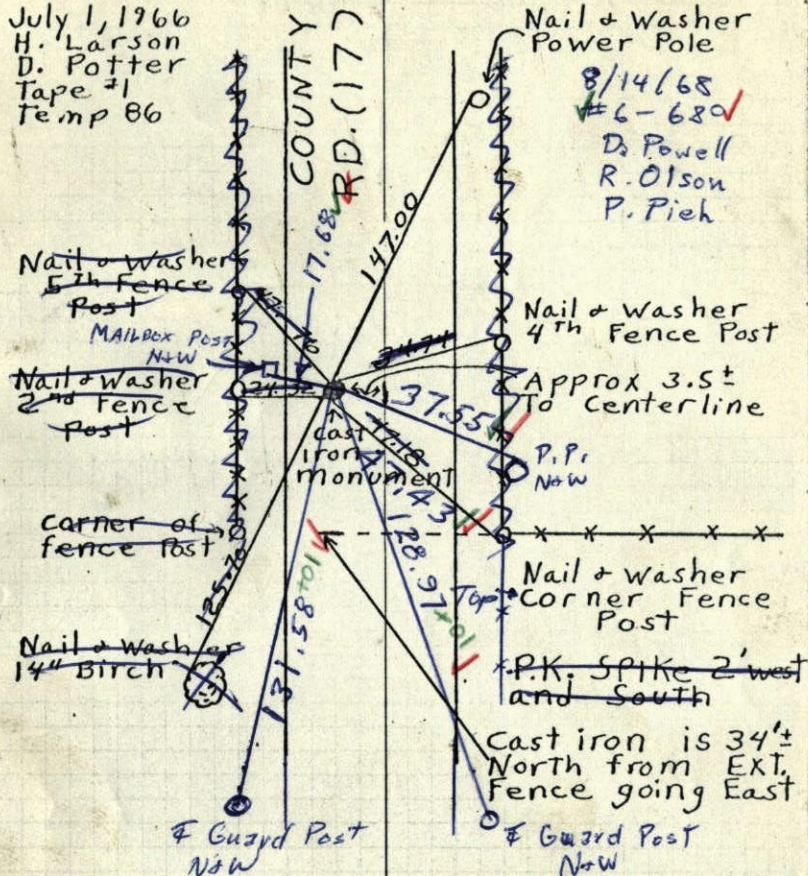 July 1, 1966
H. Larson
D. Potter
Tape #1
Temp 86
COUNTY
RD. (17)
Nail & Washer
Power Pole
8/14/68
#6 - 680
D. Powell
R. Olson
P. Pieh
147.00
17.68
Nail & Washer
5th Fence
Post
MAILBOX POST
N&W
Nail & Washer
2nd Fence
Post
24.32
34.74
Nail & Washer
4th Fence Post
Approx 3.5±
To Centerline
37.55
P.P.
N&W
Cast
iron
monument
47.18
47.43
Corner of
fence Post
125.70
131.58 +01
128.97 +01
Top
Nail & Washer
Corner Fence
Post
Nail & Washer
14" Birch
P.K. Spike 2' west
and South
Cast iron is 34'±
North from Ext.
Fence going East
Guard Post
N&W
Guard Post
N&W